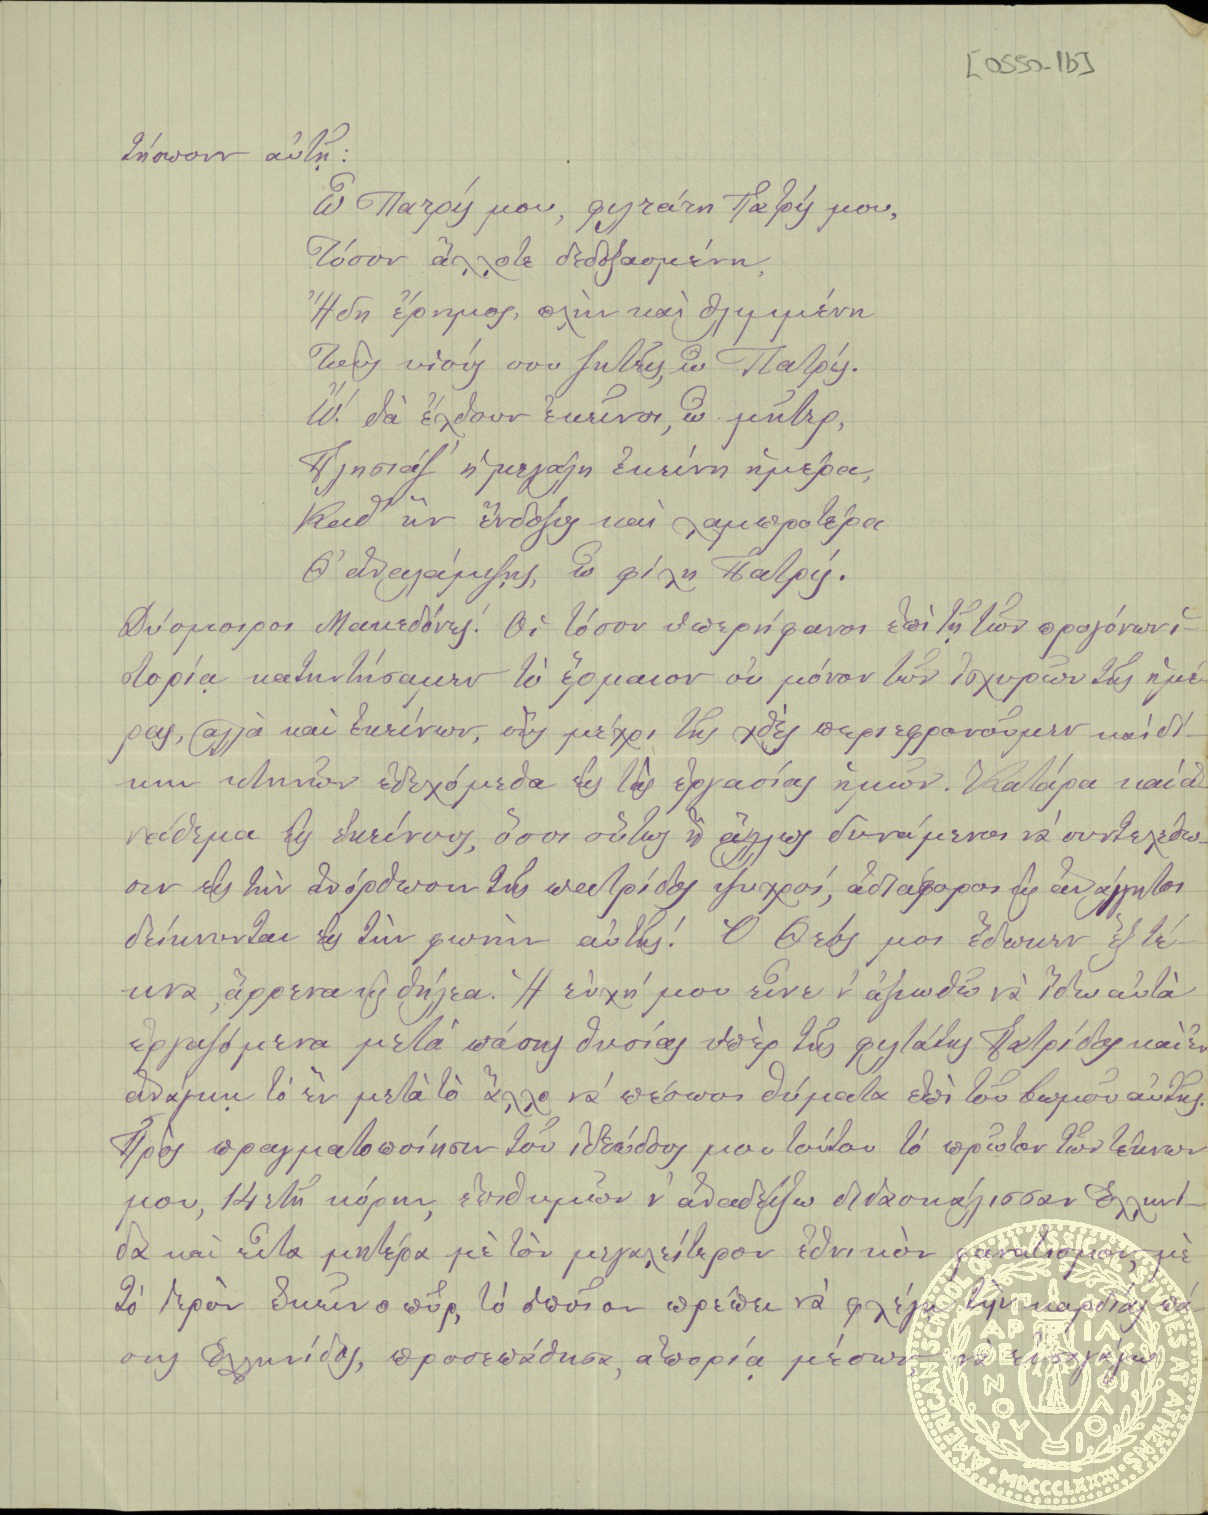 [0550-1b]
τήσωσιν αὐτῇ:
Ὦ Πατρίς μου, φιλτάτη Πατρίς μου,
Τόσον ἄλλοτε δεδοξασμένη,
Ἤδη ἔρημος, πλὴν καὶ θλιμμένη
Τοὺς υἱούς σου ζητεῖς, ὦ Πατρίς.
Ὤ! θὰ ἔλθουν ἐκεῖνοι, ὦ μῆτερ,
Πλησιάζ' ἡ μεγάλη ἐκείνη ἡμέρα,
Καθ' ἣν ἔνδοξος καὶ λαμπροτέρα
Θ' ἀναλάμψῃς, ὦ φίλη Πατρίς.
Δύσμοιροι Μακεδόνες! Οἱ τόσον ὑπερήφανοι ἐπὶ τῇ τῶν προγόνων ἱ-
στορίᾳ κατηντήσαμεν τὸ ἕρμαιον οὐ μόνον τῶν ἰσχυρῶν τῆς ἡμέ-
ρας, ἀλλὰ καὶ ἐκείνων, οὓς μέχρι τῆς χθὲς περιεφρονοῦμεν καὶ δί-
κην κτηνῶν ἐδεχόμεθα εἰς τὰς ἐργασίας ἡμῶν. Κατάρα καὶ ἀ-
νάθεμα εἰς ἐκείνους, ὅσοι οὕτως ἢ ἄλλως δυνάμενοι νὰ συντελέσω-
σιν εἰς τὴν ἀνόρθωσιν τῆς πατρίδος ψυχροί, ἀδιάφοροι καὶ ἀνάλγητοι
δείκνυνται εἰς τὴν φωνὴν αὐτῆς! Ὁ Θεός μοι ἔδωκεν ἓξ τέ-
κνα, ἄρρενα καὶ θήλεα. Ἡ εὐχή μου εἶνε ν' ἀξιωθῶ νὰ ἴδω αὐτὰ
ἐργαζόμενα μετὰ πάσης θυσίας ὑπὲρ τῆς φιλτάτης Πατρίδος καὶ ἐν
ἀνάγκῃ τὸ ἓν μετὰ τὸ ἄλλο νὰ πέσωσι θύματα ἐπὶ τοῦ βωμοῦ αὐτῆς.
Πρὸς πραγματοποίησιν τοῦ ἰδεώδους μου τούτου τὸ πρῶτον τῶν τέκνων
μου, 14 ετῆ κόρην, ἐπιθυμῶν ν' ἀναδείξω διδασκάλισσαν Ἑλληνί-
δα καὶ εἶτα μητέρα μὲ τὸν μεγαλείτερον ἐθνικὸν φανατισμόν, μὲ
τὸ ἱερὸν ἐκεῖνο πῦρ, τὸ ὁποῖον πρέπει νὰ φλέγῃ τὴν καρδίαν πά-
σης Ἑλληνίδος, προσεπάθησα, ἀπορίᾳ μέσων, νὰ εἰσαγάγω
AMERICAN SCHOOL OF CLASSICAL STUDIES AT ATHENS
MDCCCLXXXI